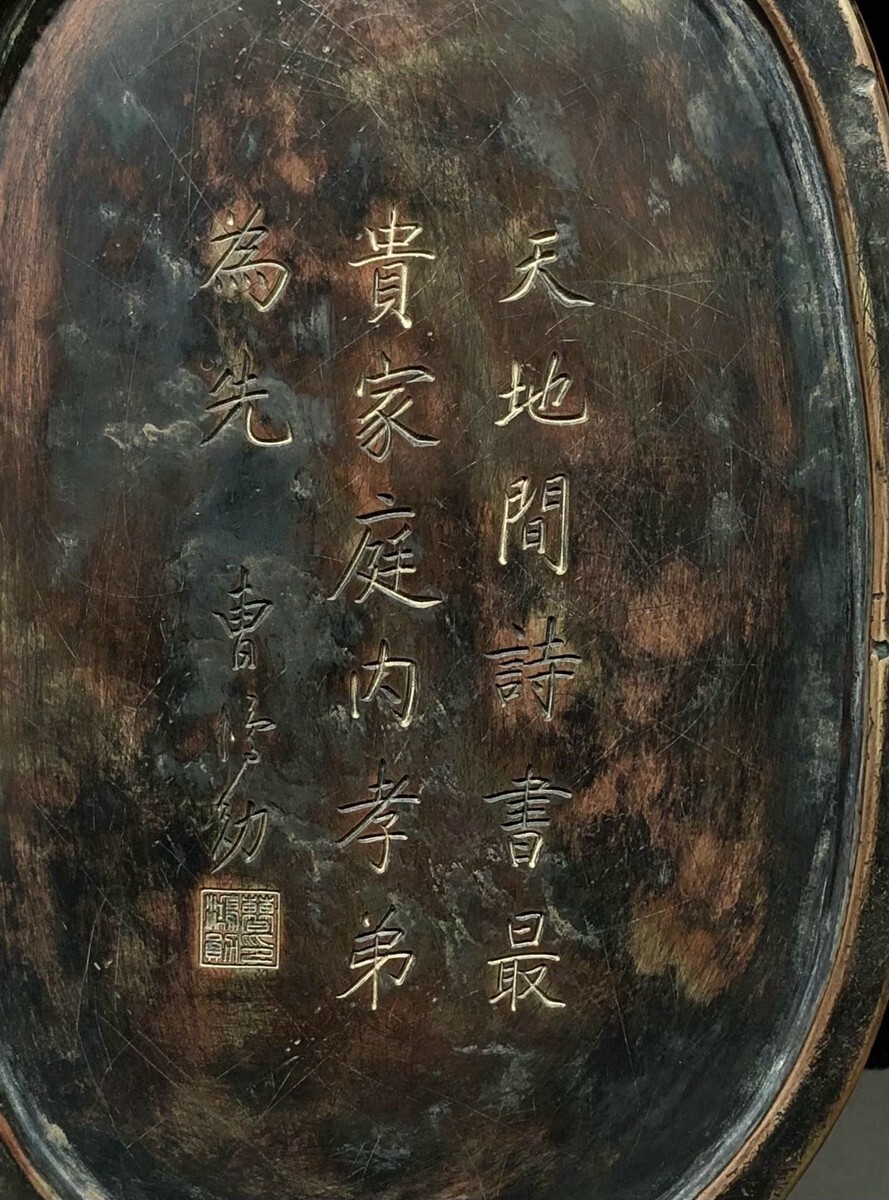 天地間詩書最
貴家庭內孝弟
為先
曹鴻勛
曹鴻勛印